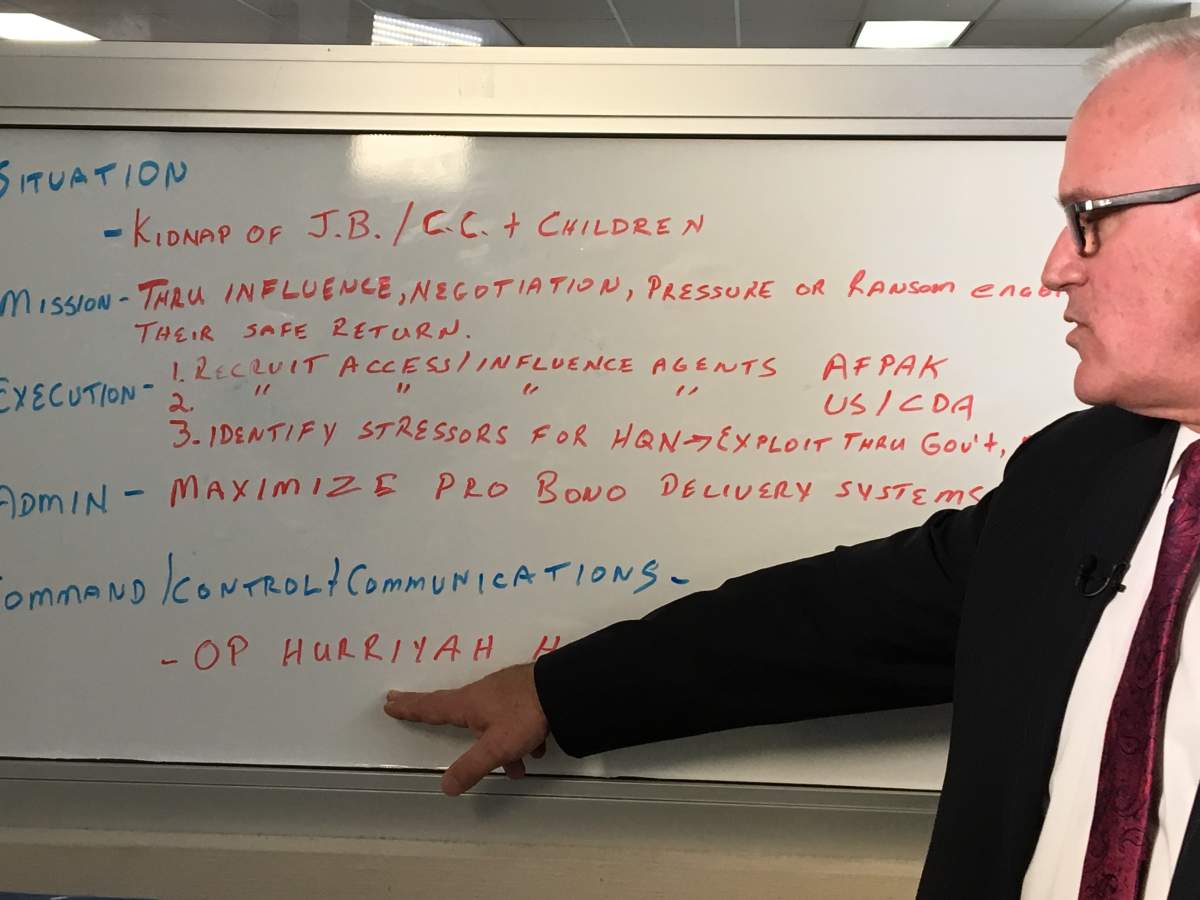 SITUATION
- KIDNAP OF J.B. / C.C. + CHILDREN
MISSION - THRU INFLUENCE, NEGOTIATION, PRESSURE OR RANSOM
THEIR SAFE RETURN.
EXECUTION - 1. RECRUIT ACCESS/INFLUENCE AGENTS AFPAK
2. " " " " US/CDA
3. IDENTIFY STRESSORS FOR HQN → EXPLOIT THRU GOV't,
ADMIN - MAXIMIZE PRO BONO DELIVERY SYSTEMS
COMMAND/CONTROL + COMMUNICATIONS -
- OP HURRIYAH